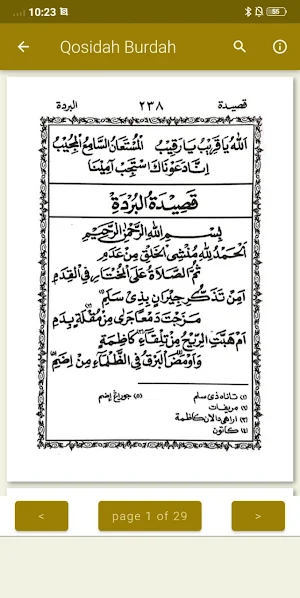 10:23
55
Qosidah Burdah
قصيدة ٢٣٨ البردة
اَللهُ يَا قَرِيْبُ يَا رَقِيْبُ الْمُسْتَعَانُ السَّامِعُ الْمُجِيْبُ
اِنَّا دَعَوْنَاكَ اسْتَجِبْ اٰمِيْنَا
قَصِيْدَةُ الْبُرْدَةِ
بِسْمِ اللهِ الرَّحْمٰنِ الرَّحِيْمِ
اَلْحَمْدُ لِلّٰهِ مُنْشِي الْخَلْقِ مِنْ عَدَمِ
ثُمَّ الصَّلَاةُ عَلَى الْمُخْتَارِ فِي الْقِدَمِ
اَمِنْ تَذَكُّرِ جِيْرَانٍ بِذِيْ سَلَمِ
مَزَجْتَ دَمْعًا جَرٰى مِنْ مُقْلَةٍ بِدَمِ
اَمْ هَبَّتِ الرِّيْحُ مِنْ تِلْقَاءِ كَاظِمَةٍ
وَاَوْمَضَ الْبَرْقُ فِي الظَّلْمَاءِ مِنْ اِضَمِ
(١) تانه ذى سلم (٥) جوراغ إضم
(٢) مريفات
(٣) اراهى دالان كاظمة
(٤) كاتون
< page 1 of 29 >